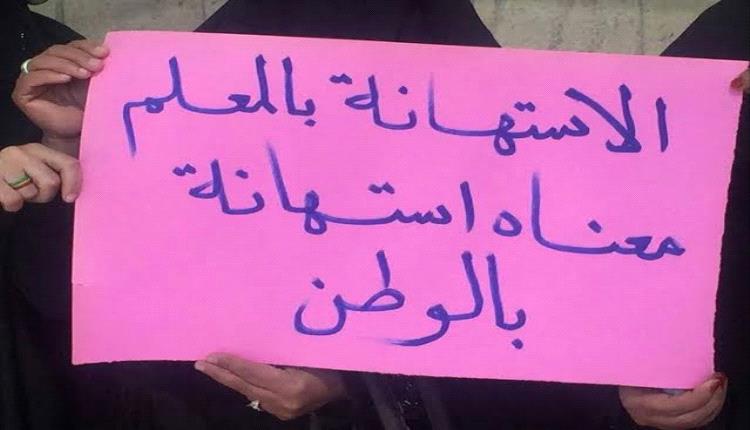 الاستهانة بالمعلم
معناه استهانة
بالوطن